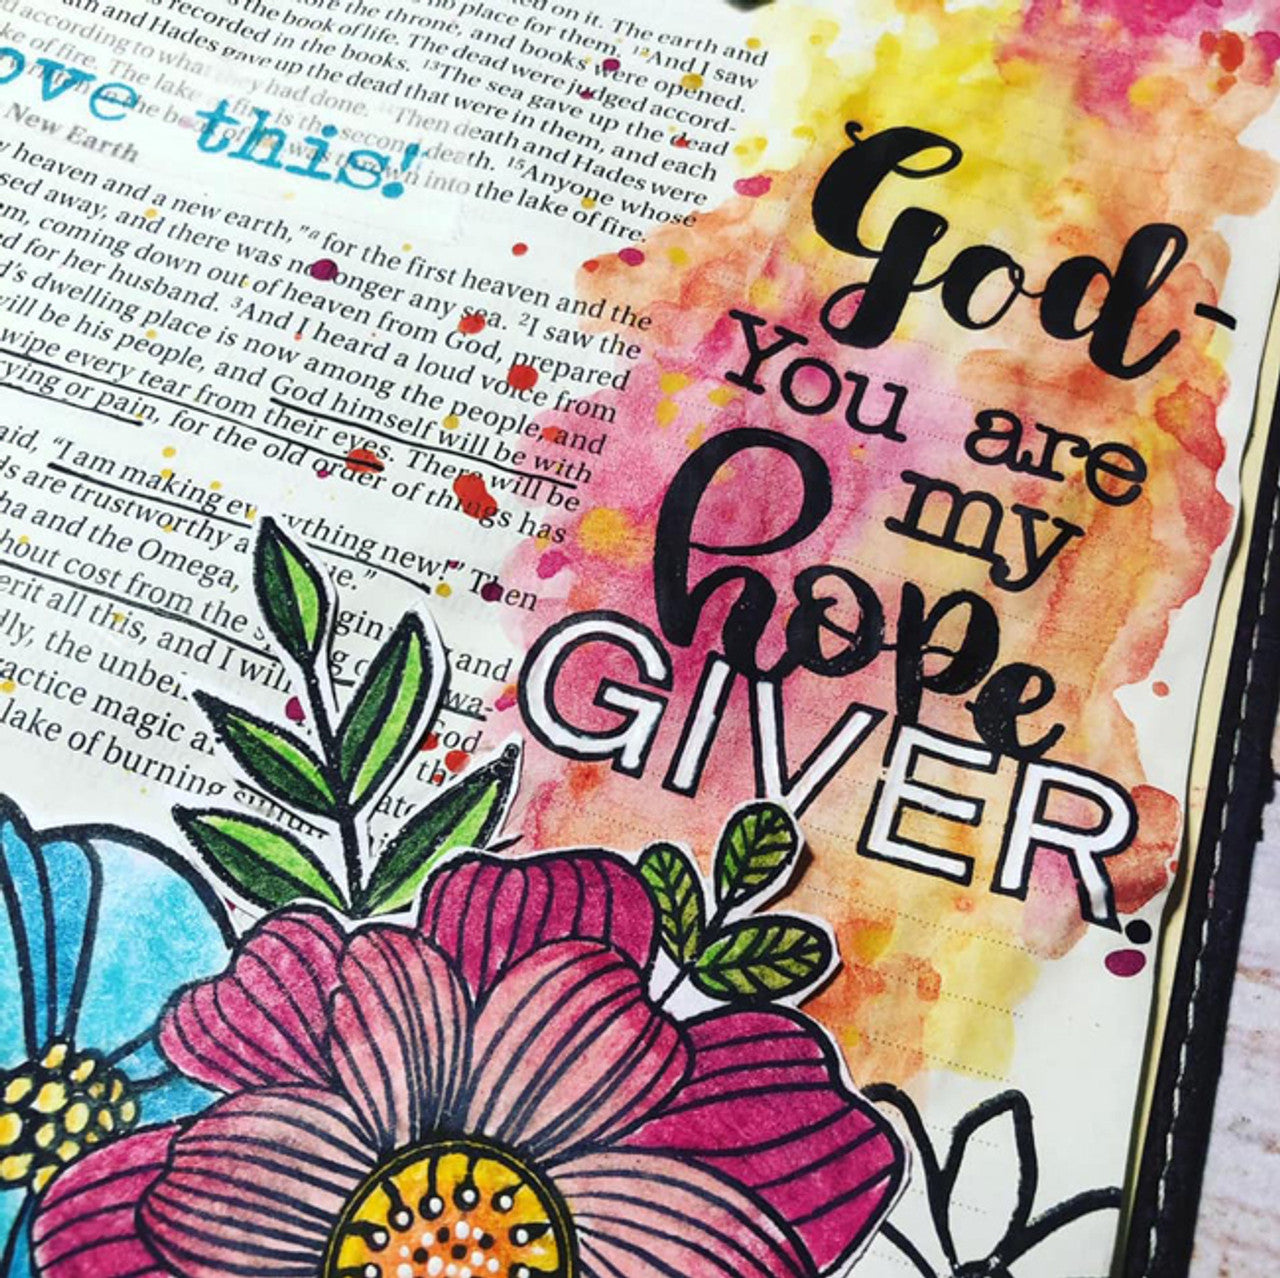 ed on it. The earth and
no place for them. ¹²And I saw
the throne, and books were opened.
the book of life. The dead were judged accord-
recorded in the books. ¹³The sea gave up the dead
and Hades gave up the dead that were in them, and each
according to what they had done. ¹⁴Then death and Hades were
ke of fire. The lake of fire is the second death. ¹⁵Anyone whose
was thrown into the lake of fire.
ove this!
New Earth
heaven and a new earth,”ᵃ for the first heaven and the
sed away, and there was no longer any sea. ²I saw the
em, coming down out of heaven from God, prepared
ed for her husband. ³And I heard a loud voice from
d’s dwelling place is now among the people, and
will be his people, and God himself will be with
wipe every tear from their eyes. There will be
rying or pain, for the old order of things has
aid, “I am making everything new!” Then
ds are trustworthy a ue.”
ha and the Omega, gin and
hout cost from the wa-
erit all this, and I will God
dly, the unbe th
ractice magic
lake of burning
God-
You are
my
hope
GIVER.